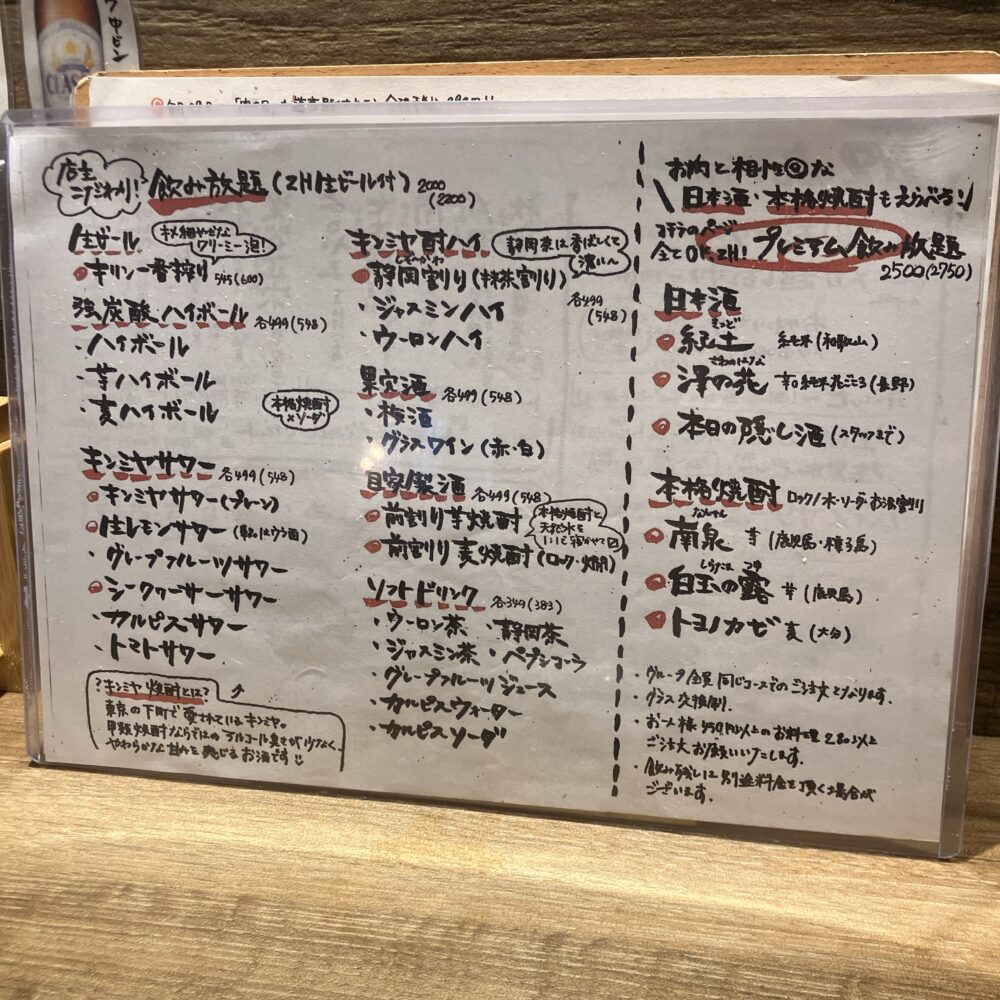 中ビン
CLAS
店主
こだわり!
飲み放題 (2H生ビール付) 2000
(2200)
生ビール
キメ細やかな
クリーミー泡!
キリン一番搾り 545(600)
強炭酸ハイボール 各499(548)
・ハイボール
・芋ハイボール
・麦ハイボール
本格焼酎
×ソーダ
キンミヤサワー 各499(548)
・キンミヤサワー(プレーン)
生レモンサワー
・グレープフルーツサワー
シークヮーサーサワー
・カルピスサワー
・トマトサワー
?キンミヤ焼酎とは?
東京の下町で愛されているキンミヤ。
甲類焼酎ならではのアルコール臭さが少なく、
やわらかな甘みを感じるお酒です
キンミヤ酎ハイ
静岡茶は香ばしくて
濃い〜
静岡割り(抹茶割り)
各499
(548)
・ジャスミンハイ
・ウーロンハイ
果実酒 各499(548)
・梅酒
・グラスワイン(赤・白)
自家製酒 各499(548)
前割り芋焼酎
前割り麦焼酎(ロック・燗)
本格焼酎と
天然水を
ソフトドリンク 各349(383)
・ウーロン茶 ・静岡茶
・ジャスミン茶 ・ペプシコーラ
・グレープフルーツジュース
・カルピスウォーター
・カルピスソーダ
お肉と相性◎な
\日本酒・本格焼酎もえらべる!/
コチラのページ
全てOK 2H! プレミアム飲み放題
2500(2750)
日本酒
きっど
紀土 純米(和歌山)
さわのはな
澤の花 辛口純米 花ごころ(長野)
本日の隠し酒(スタッフまで)
本格焼酎 ロック/水・ソーダ・お湯割り
なんせん
南泉 芋(鹿児島・種子島)
しらたま つゆ
白玉の露 芋(鹿児島)
トヨノカゼ 麦(大分)
・グループ全員同じコースでのご注文となります。
・グラス交換制。
・お一人様450円以上のお料理2品以上
ご注文お願いいたします。
・飲み残しは別途料金を頂く場合が
ございます。